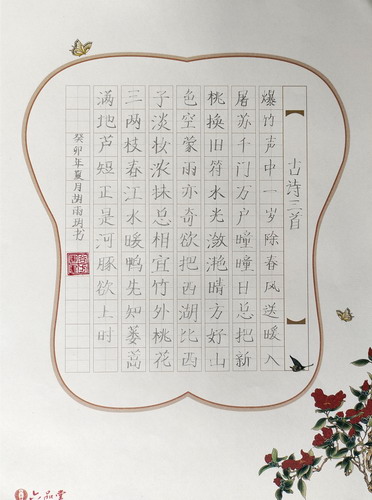 【古诗三首】
爆竹声中一岁除春风送暖入
屠苏千门万户曈曈日总把新
桃换旧符水光潋滟晴方好山
色空蒙雨亦奇欲把西湖比西
子淡妆浓抹总相宜竹外桃花
三两枝春江水暖鸭先知蒌蒿
满地芦短正是河豚欲上时
癸卯年夏月胡雨玥书
六品堂